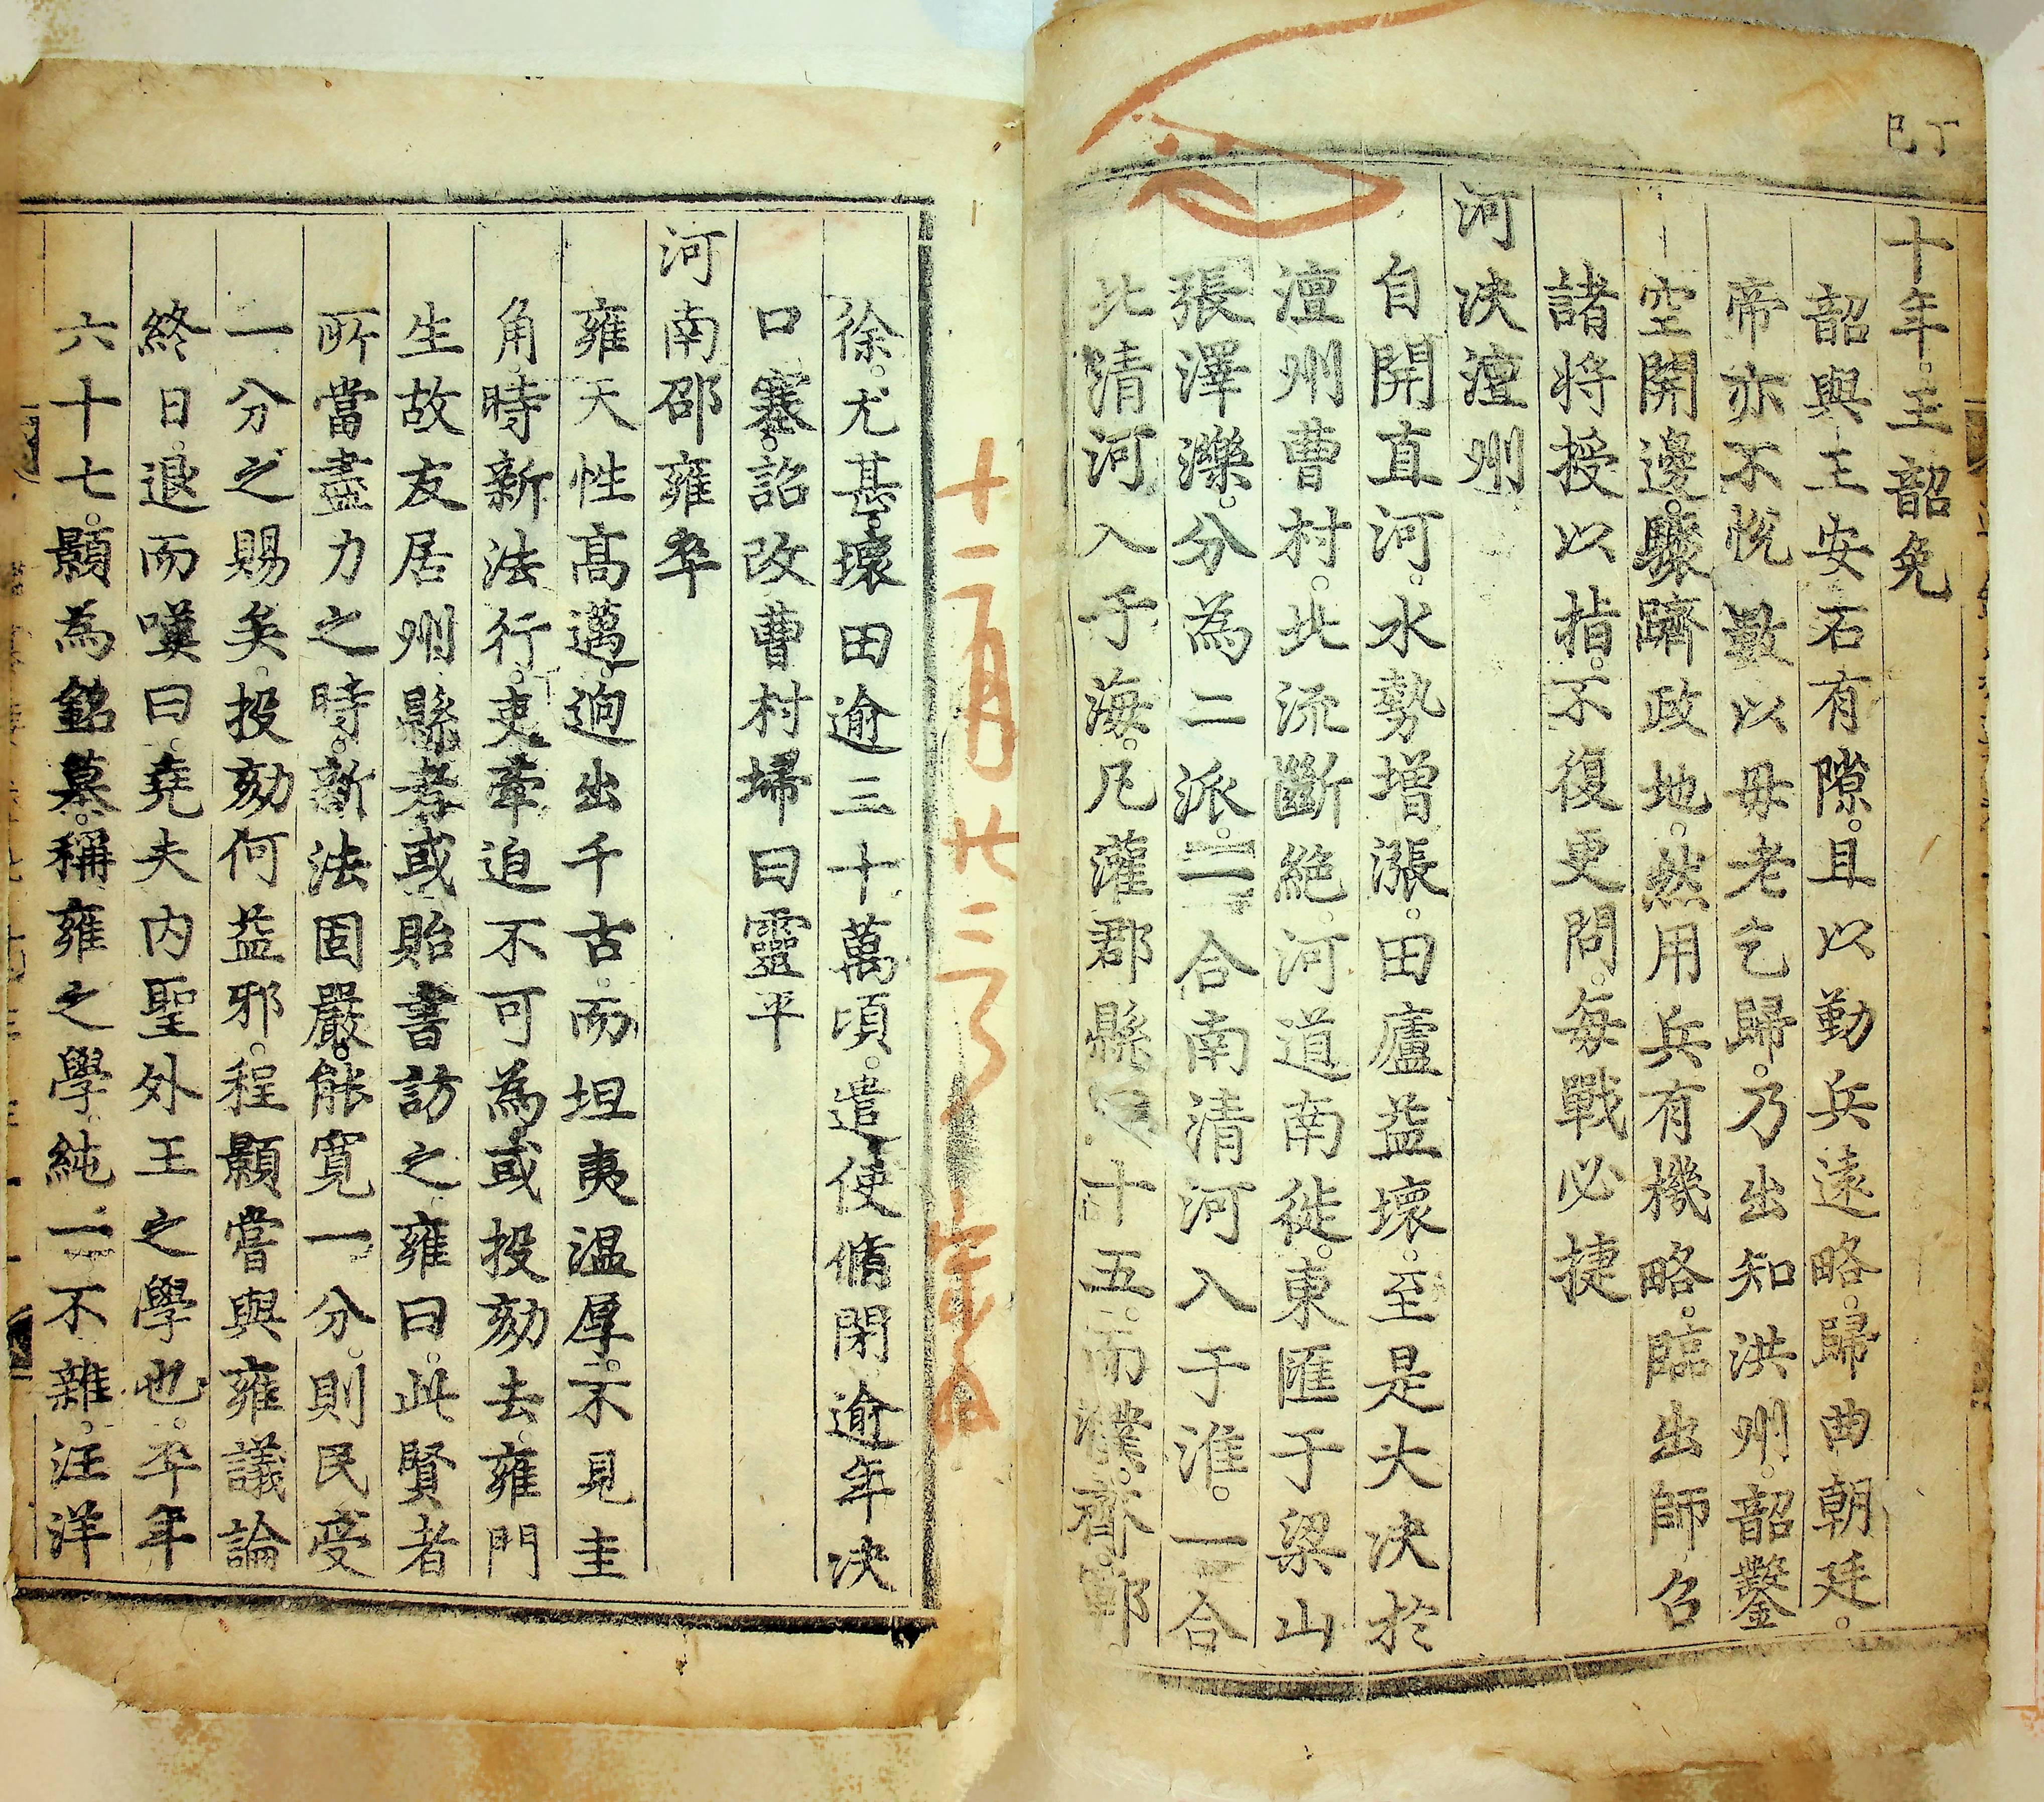 丁巳
十年。王韶免
韶與王安石有隙。且以勤兵遠略。歸曲朝廷。
帝亦不悅數以母老乞歸。乃出知洪州。韶鑿
空開邊。驟躋政地。然用兵有機略。臨出師召
諸將授以指。不復更問。每戰必捷
河決澶州
自開直河。水勢增漲。田廬益壞。至是大決於
澶州曹村。北流斷絕。河道南徙。東匯于梁山
張澤濼。分為二派。一合南清河入于淮。一合
北清河入于海。凡灌郡縣四十五。而濮。齊。鄆。
徐。尤甚。壞田逾三十萬頃。遣使脩閉。逾年決
口塞。詔改曹村埽曰靈平
河南邵雍卒
雍天性高邁。逈出千古。而坦夷温厚。不見圭
角。時新法行。吏牽迫不可為或投劾去。雍門
生故友居州縣者或貽書訪之。雍曰。此賢者
所當盡力之時。新法固嚴。能寬一分。則民受
一分之賜矣。投劾何益邪。程顥嘗與雍議論
終日。退而嘆曰。堯夫内聖外王之學也。卒年
六十七。顥為銘墓。稱雍之學。純一不雜。汪洋